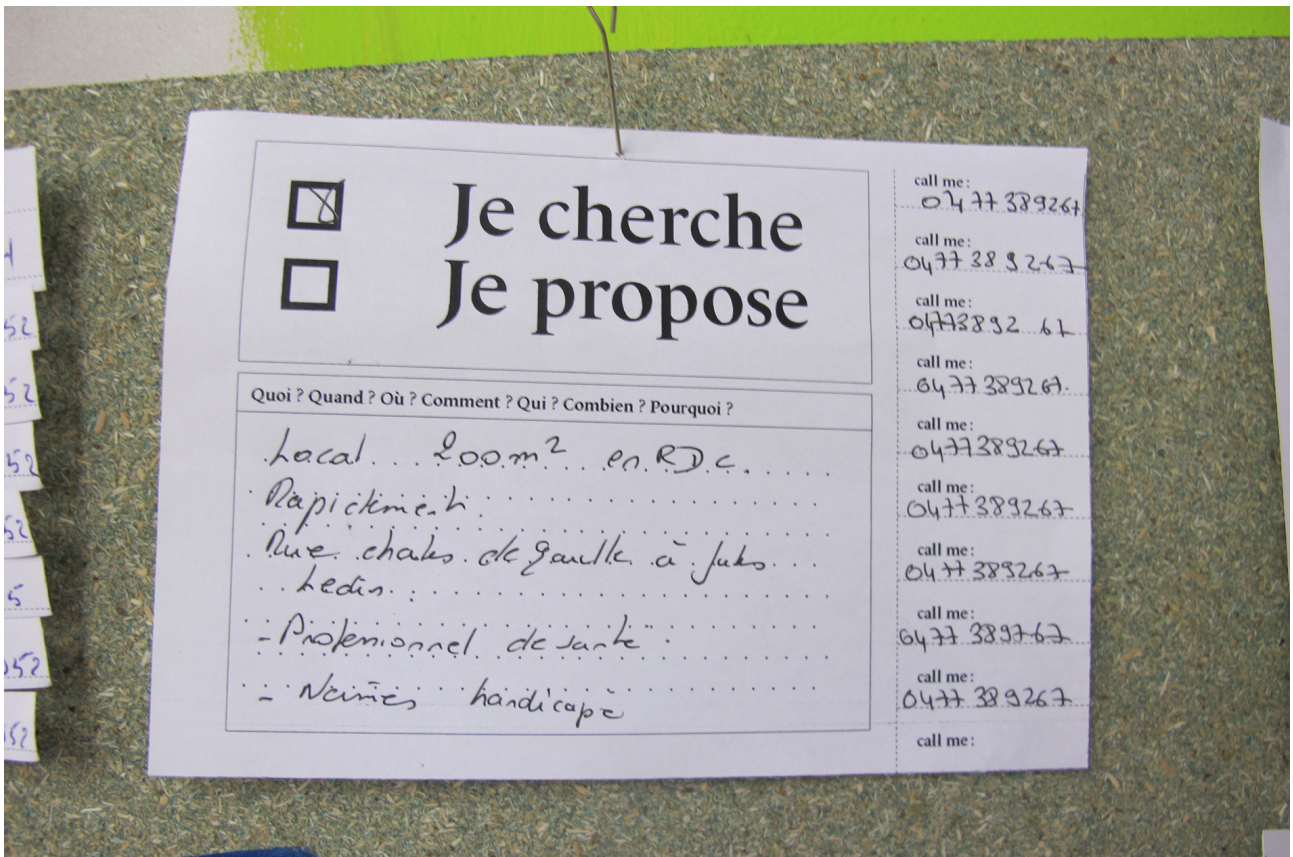 Je cherche
Je propose
Quoi ? Quand ? Où ? Comment ? Qui ? Combien ? Pourquoi ?
Local 200m² en R.D.C.
Rapidement.
Rue chales de gaulle à
Ledin :
- Professionnel de sante
- handicapé
call me :
0477389267
call me :
0477389267
call me :
0477389267
call me :
0477389267.
call me :
0477389267
call me :
0477389267
call me :
0477389267
call me :
0477389767
call me :
0477389267
call me :
52
52
52
52
5
052
52